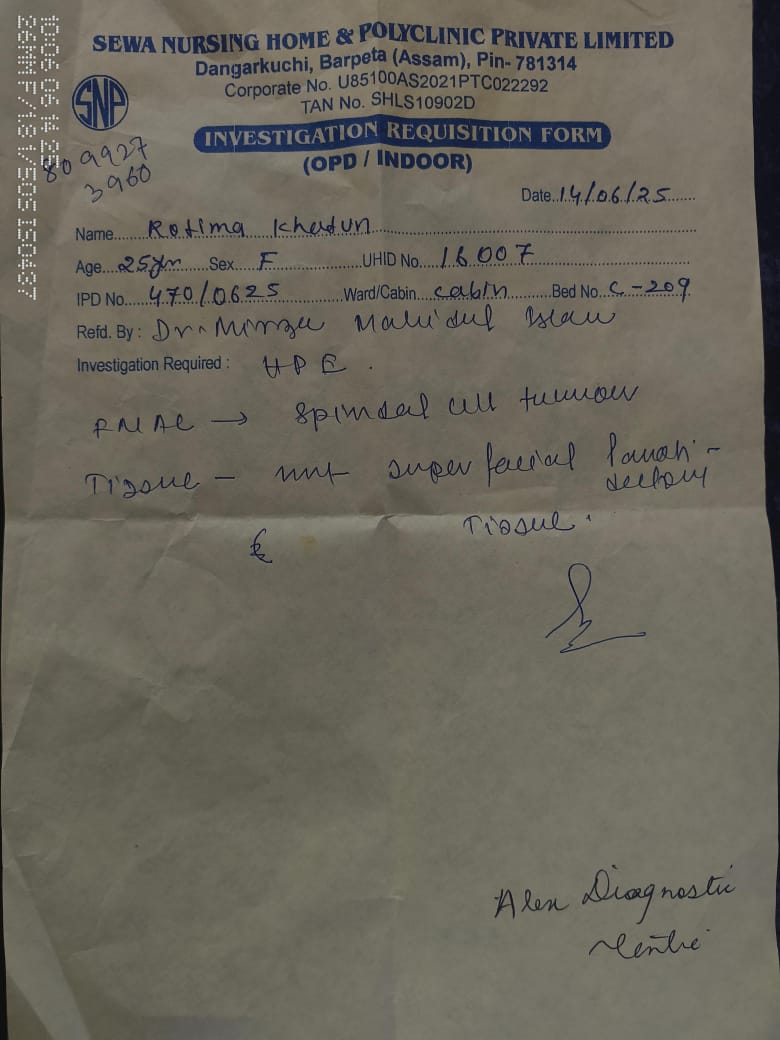 SEWA NURSING HOME & POLYCLINIC PRIVATE LIMITED
Dangarkuchi, Barpeta (Assam), Pin- 781314
Corporate No. U85100AS2021PTC022292
TAN No. SHLS10902D
SNP
INVESTIGATION REQUISITION FORM
(OPD / INDOOR)
809927
3960
Date..14/06/25
Name..... Rotima Khatun
Age... 25yr ....Sex.. F ....UHID No... 16007
IPD No.... 470/0625 ....Ward/Cabin.. cabin ....Bed No.. C-209
Refd. By : Dr. Mirza
Investigation Required : HPE.
FNAC → spindal cell tumour
Tissue - super facial
Tissue.
Alex Diagnostic
Centre